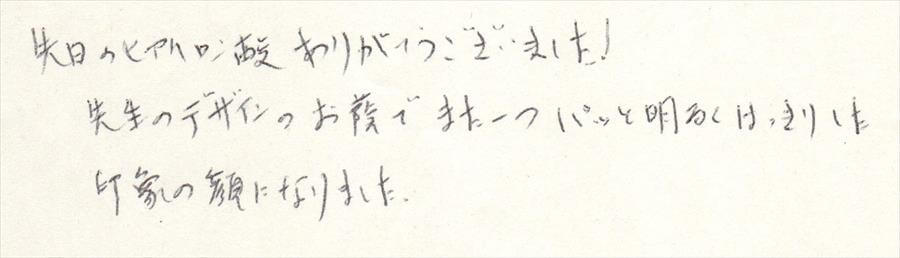 先日のヒアルロン酸ありがとうございました!
先生のデザインのお蔭でまた一つパッと明るくはっきりした
印象の顔になりました.